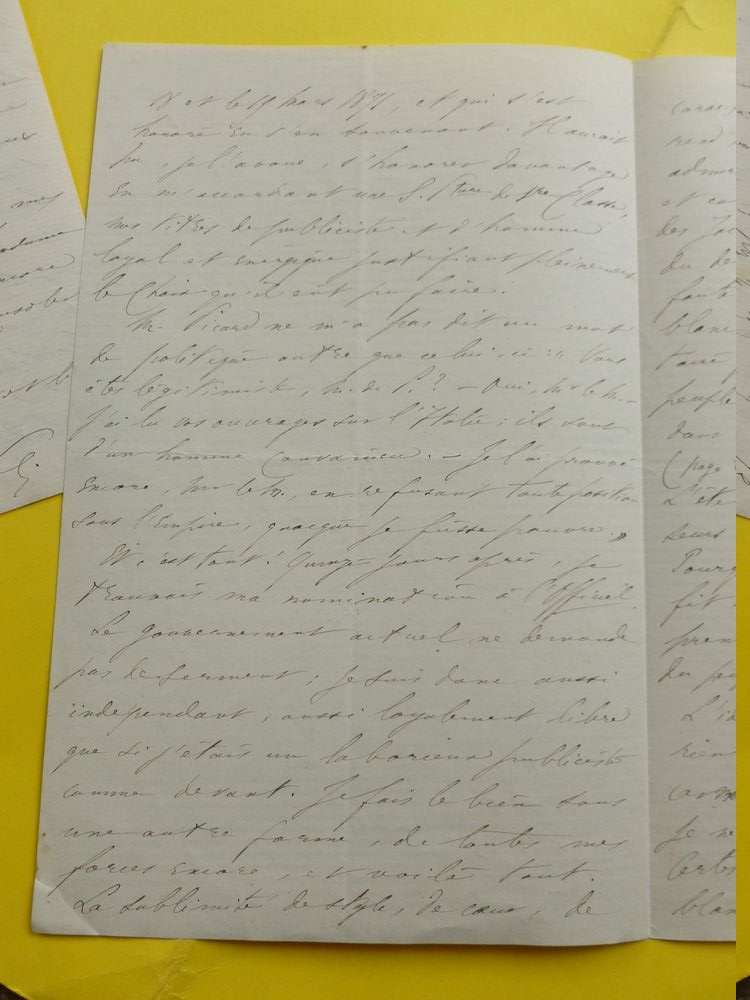 18 et le 19 mars 1871, et qui s'est
honoré en s'en souvenant. Il aurait
pu, je l'avoue, s'honorer davantage
en m'accordant une S. Pture de 1re Classe,
mes titres de publiciste et d'homme
loyal et énergique justifiant pleinement
le Choix qu'il eût pu faire.
M. Picard ne m'a pas dit un mot
de politique autre que celui-ci : « Vous
êtes légitimiste, M. de P.? — Oui, Mr le M. —
J'ai lu vos ouvrages sur l'Italie ; ils sont
d'un homme Convaincu. — Je l'ai prouvé
encore, Mr le M., en refusant toute position
sous l'Empire, quoique je fusse pauvre. »
Et c'est tout ! Quinze jours après, je
trouvais ma nomination à l'Officiel.
Le gouvernement actuel ne demande
pas de serment ; je suis donc aussi
indépendant, aussi loyalement libre
que si j'étais un laborieux publiciste
comme devant. Je fais le bien sous
une autre forme, de toutes mes
forces encore, et voilà tout.
La sublimité de style, de cœur, de
rend
admir
et co
des
du de
faute
blanc
peuple
dans
(page
L'été
leurs
fit
pren
du peu
rien
Je ne
Certes
blan
mes
madame
encore
et le